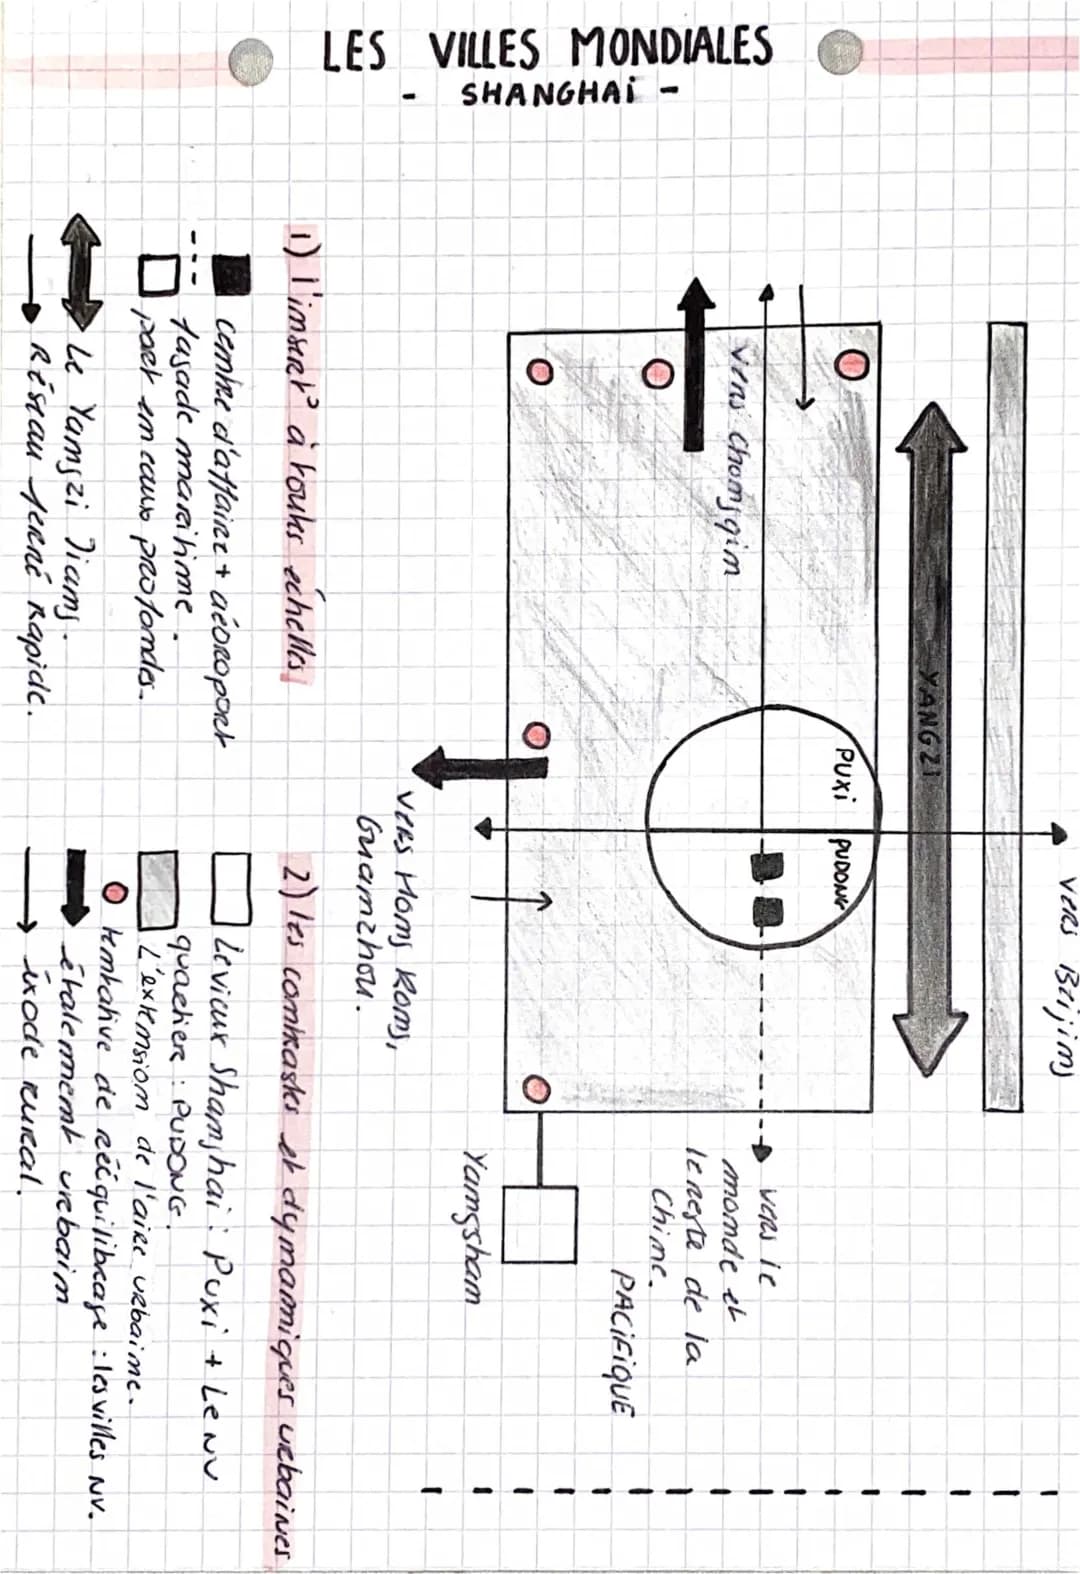 LES VILLES MONDIALES
- SHANGHAi -
vers Beijing
YANGZI
PUXi
PUDONG
vers chongqin
vers le
monde et
le reste de la
Chine.
PACiFiQUE
Yangshan
vers Hong Kong,
Guanzhou.
1) l'insert° à toutes échelles
centre d'affaire + aéroport
façade maritime.
port en eaux profondes.
Le Yangzi Jiang.
Réseau ferré Rapide.
2) les contrastes et dynamiques urbaines
Le vieux Shanghai : Puxi + Le nv
quartier : PUDONG.
L'extension de l'aire urbaine.
tentative de rééquilibrage : les villes nv.
étalement urbain
éxode rural.